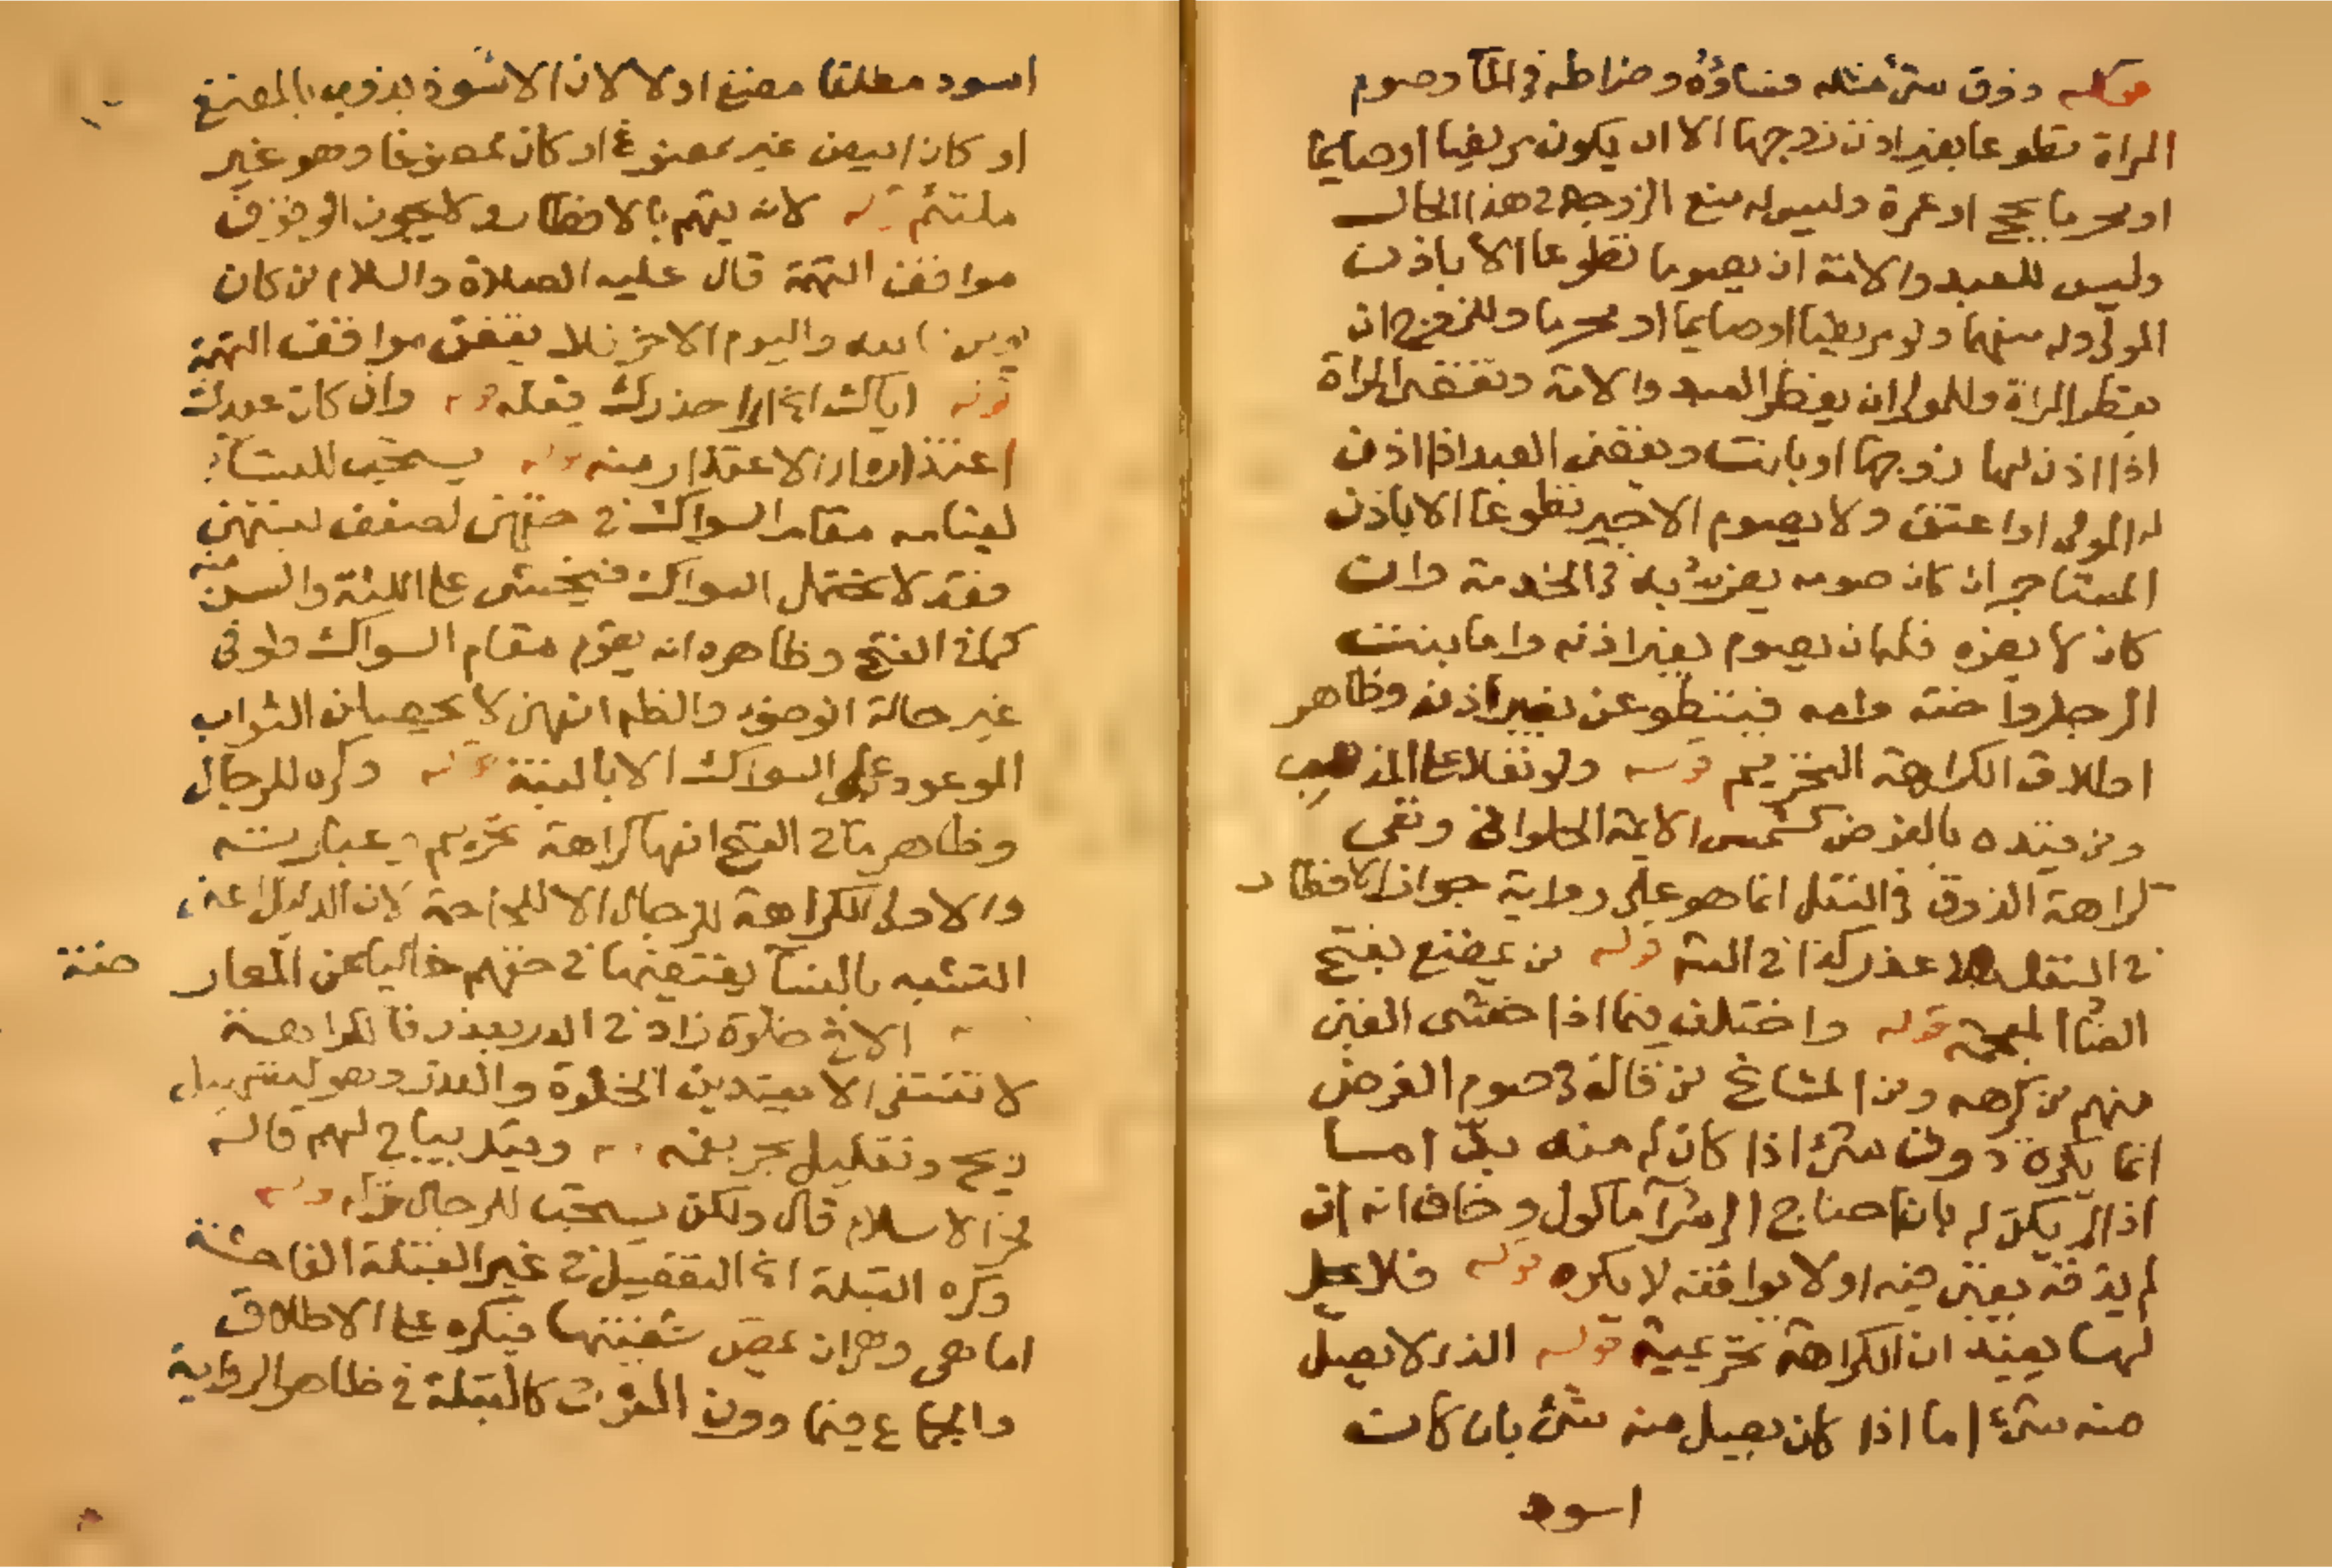 قوله ذوق شئ مثله فساؤه وضراطه في الماء وصوم
المراة تطوعا بغير اذن زوجها الا ان يكون مريضا او صايما
او محرما بحج او عمرة وليس له منع الزوجة في هذا الحال
وليس للعبد والامة ان يصوما تطوعا الا باذن
المولى وله منعهما ولو مريضا او صايما او محرما وللزوج ان
يفطر المراة وللمولى ان يفطر العبد والامة وتقضى المراة
اذا اذن لها زوجها او بانت ويقضى العبد اذا اذن
له المولى او اعتق ولا يصوم الاجير تطوعا الا باذن
المستاجر ان كان صومه يضر به في الخدمة وان
كان لا يضره فله ان يصوم بغير اذنه واما بنت
الرجل واخته وامه فيتطوعن بغير اذنه وظاهر
اطلاق الكراهة التحريم قوله ولو نفلا على المذهب
ومن قيده بالفرض كشمس الايمة الحلواني ونفى
كراهة الذوق في النفل انما هو على رواية جواز الافطار
في النفل بلا عذر كذا في قوله من يمضغ بفتح
الضاد المعجمة قوله واختلف فيما اذا خشى الغبن
منهم من كرهه ومن المشايخ من قال في صوم الفرض
انما يكره ذوق شئ اذا كان له منه بد اما
اذا لم يكن له بان احتاج الى شرآ ماكول وخاف انه ان
لم يذقه يغبن فيه او لا يوافقه لا يكره قوله فلا
لهما يفيد ان الكراهة تحريمية قوله الذى لا يصل
منه شئ اما اذا كان يصل منه شئ بان كان
اسود
اسود مطلقا مضغ او لا لان الاسود يذوب بالمضغ
او كان ابيض غير ممضوغ او كان ممضوغا وهو غير
ملتئم قوله لانه يتهم بالافطار ولا يجوز الوقوف
مواقف التهمة قال عليه الصلاة والسلام من كان
يومن بالله واليوم الاخر فلا يقفن مواقف التهمة
قوله اياك الخ اى احذرك فعله قوله وان كان عندك
اعتذاره اى الاعتذار منه قوله يستحب للنساء
لقيامه مقام السواك في حقهن لضعف بنيتهن
فقد لا يحتمل السواك فيخشى على اللثة والسن منه
كما في الفتح وظاهره انه يقوم مقام السواك ولو في
غير حالة الوضوء والظاهر انهن لا يحصلن الثواب
الموعود على السواك الا بالنية قوله وكره للرجال
وظاهر ما في الفتح انها كراهة تحريم عبارته
والاولى الكراهة للرجال الا للحاجة لان الدليل اعني
التشبه بالنساء يقتضيها في حقهم خاليا عن المعار
ضة
الا في خلوة زاد في الدر بعذر فالكراهة
لا تنتفى الا بقيدين الخلوة والعذر وهو لتسهيل
ريح وتقليل وقيل يباح لهم قاله
فخر الاسلام قال ولكن يستحب للرجال تركه قوله
وكره القبلة الخ التفصيل في غير القبلة الفاحشة
اما هي وهي ان يمص شفتيها فيكره على الاطلاق
والجماع فيما دون الفرج كالقبلة في ظاهر الرواية